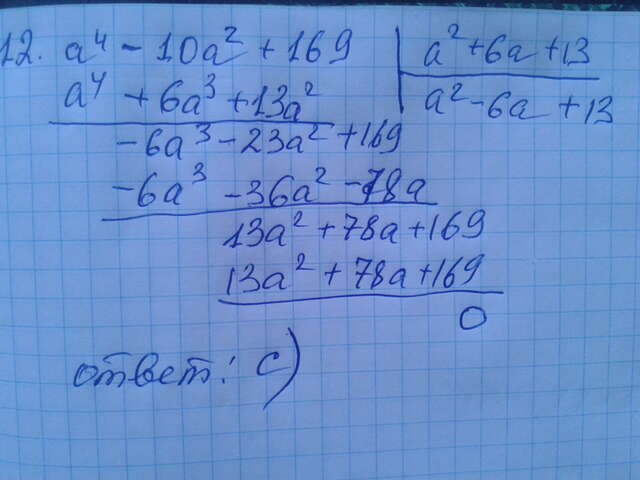 12. a⁴ - 10a² + 169 | a² + 6a + 13
a⁴ + 6a³ + 13a² | a² - 6a + 13
-6a³ - 23a² + 169
-6a³ - 36a² - 78a
13a² + 78a + 169
13a² + 78a + 169
0
ответ: c)